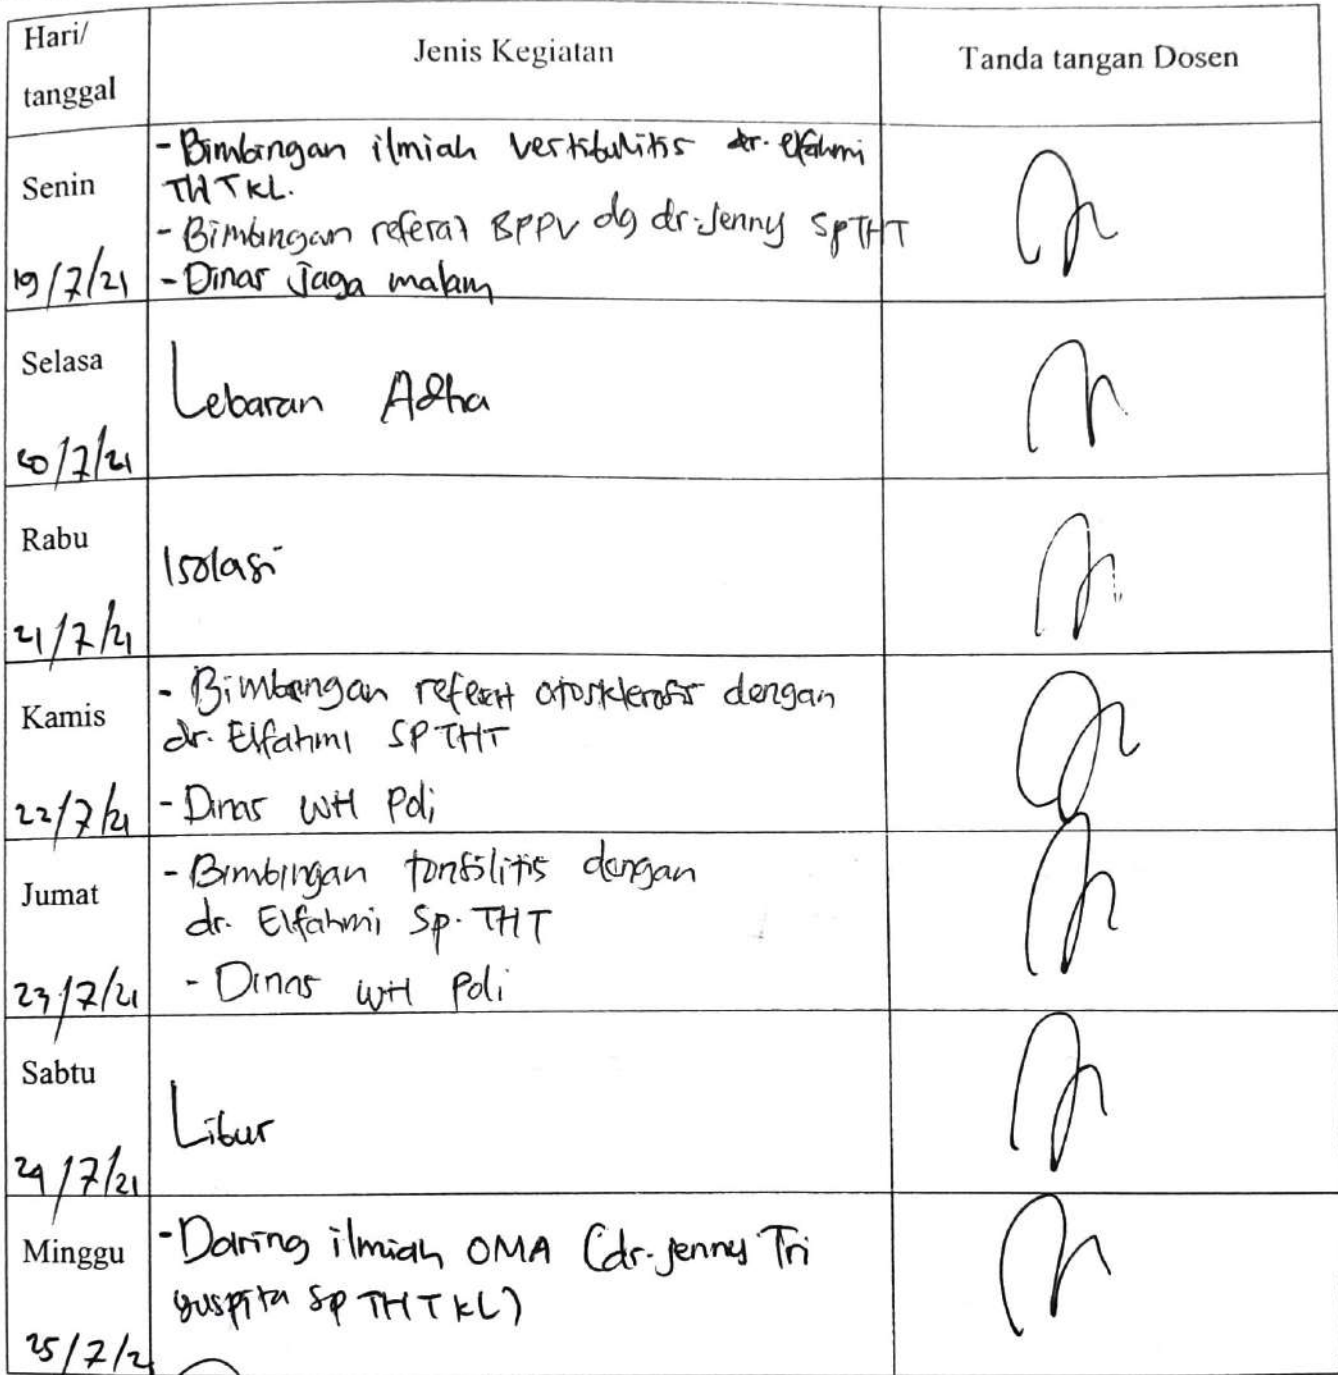 Hari/
tanggal
Jenis Kegiatan
Tanda tangan Dosen
Senin
19/7/21
- Bimbingan ilmiah vertibulitis dr. elfahmi
THTKL.
- Bimbingan referat BPPV dg dr. Jenny SpTHT
- Dinas Jaga malam
Selasa
20/7/21
Lebaran Adha
Rabu
21/7/21
Isolasi
Kamis
22/7/21
- Bimbingan referat otosklerosis dengan
dr. Elfahmi SPTHT
- Dinas WH Poli
Jumat
23/7/21
- Bimbingan tonsilitis dengan
dr. Elfahmi Sp. THT
- Dinas WH Poli
Sabtu
24/7/21
Libur
Minggu
25/7/2
- Daring ilmiah OMA (dr. Jenny Tri
yuspita Sp THTKL)